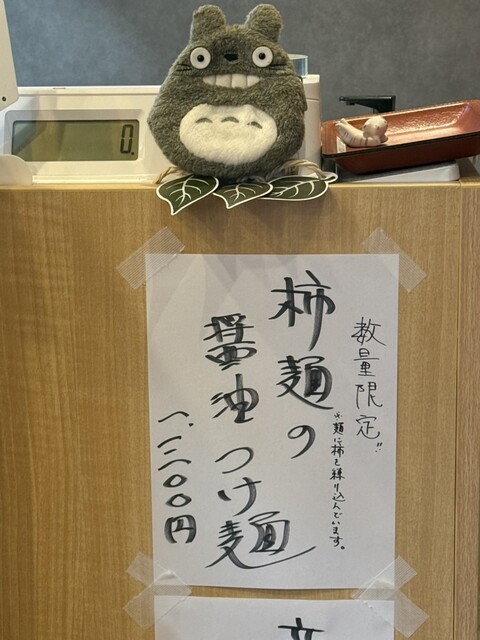 0.
数量限定!!
※麺に柿を練り込んでいます。
柿麺の
醤油つけ麺
一、三〇〇円